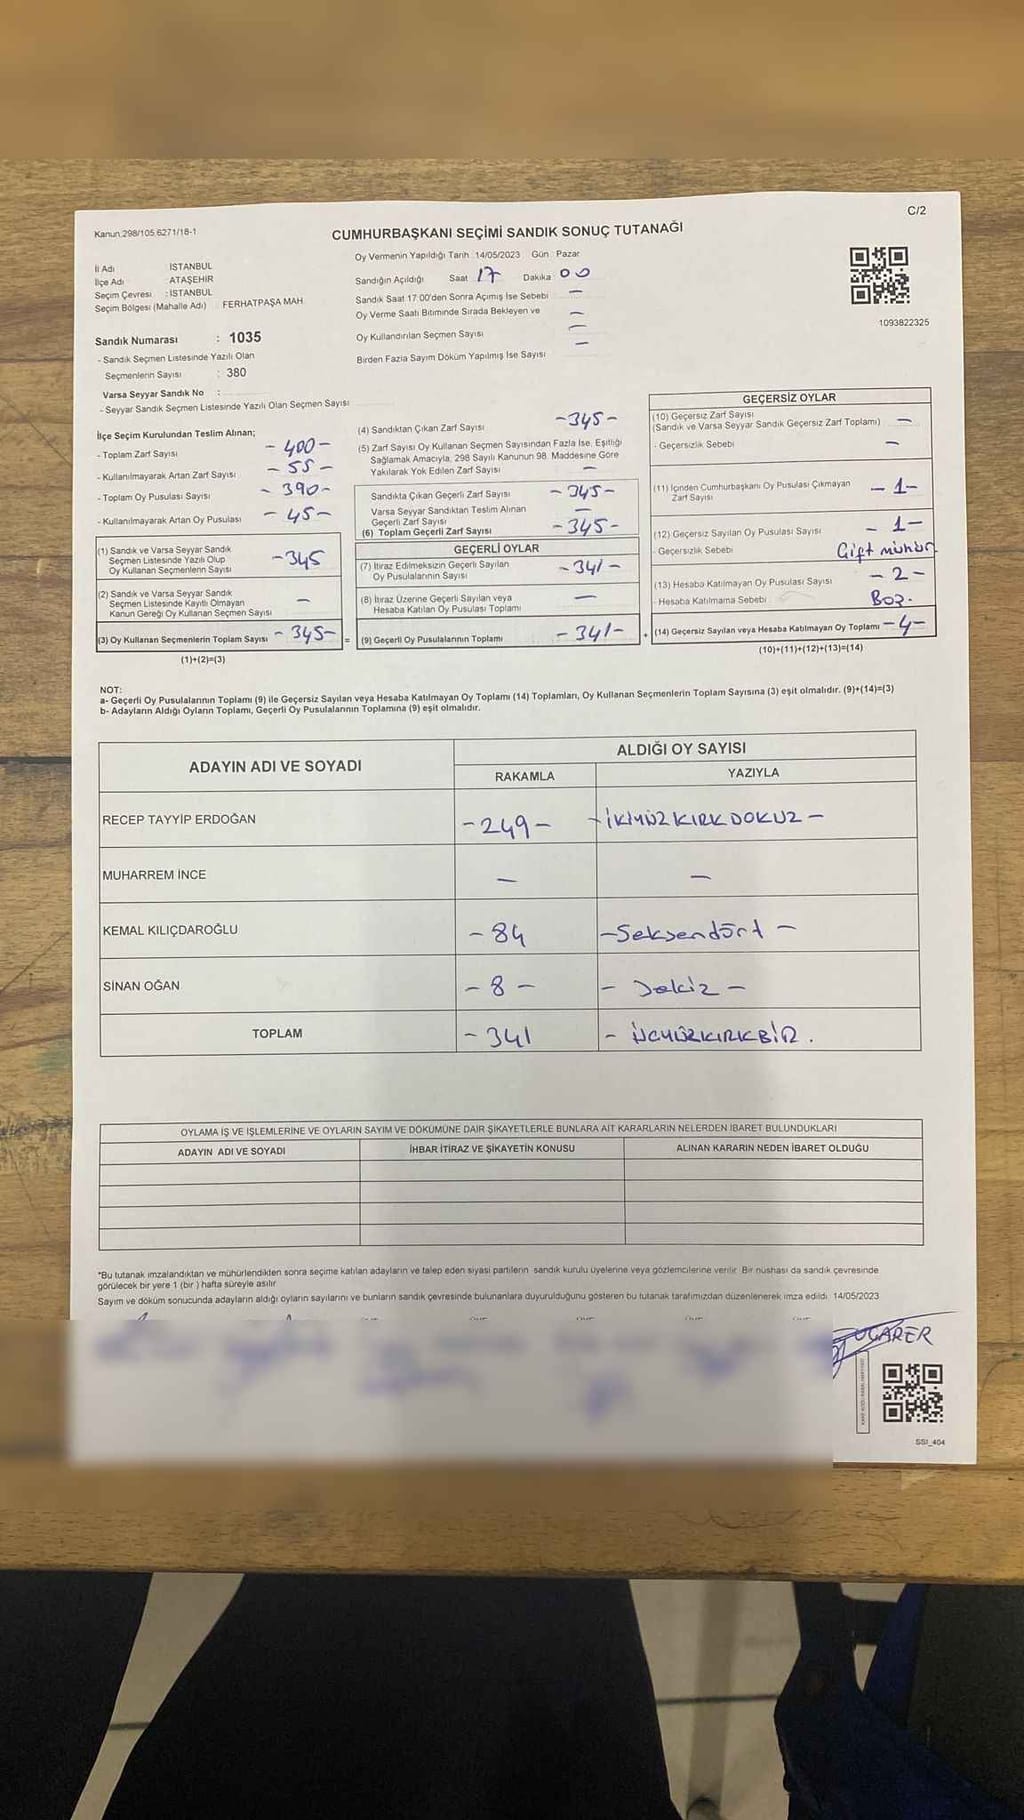 C/2
Kanun:298/105 6271/18-1
CUMHURBAŞKANI SEÇİMİ SANDIK SONUÇ TUTANAĞI
İl Adı : İSTANBUL
İlçe Adı : ATAŞEHİR
Seçim Çevresi : İSTANBUL
Seçim Bölgesi (Mahalle Adı) FERHATPAŞA MAH.
Oy Vermenin Yapıldığı Tarih : 14/05/2023 Gün : Pazar
Sandığın Açıldığı Saat : 17 Dakika : 00
Sandık Saat 17:00'den Sonra Açımış İse Sebebi —
Oy Verme Saati Bitiminde Sırada Bekleyen ve —
Oy Kullandırılan Seçmen Sayısı —
Birden Fazla Sayım Döküm Yapılmış İse Sayısı —
1093822325
Sandık Numarası : 1035
- Sandık Seçmen Listesinde Yazılı Olan
Seçmenlerin Sayısı : 380
Varsa Seyyar Sandık No :
- Seyyar Sandık Seçmen Listesinde Yazılı Olan Seçmen Sayısı
İlçe Seçim Kurulundan Teslim Alınan;
- Toplam Zarf Sayısı - 400 -
- Kullanılmayarak Artan Zarf Sayısı - 55 -
- Toplam Oy Pusulası Sayısı - 390 -
- Kullanılmayarak Artan Oy Pusulası - 45 -
(1) Sandık ve Varsa Seyyar Sandık
Seçmen Listesinde Yazılı Olup
Oy Kullanan Seçmenlerin Sayısı - 345
(2) Sandık ve Varsa Seyyar Sandık
Seçmen Listesinde Kayıtlı Olmayan
Kanun Gereği Oy Kullanan Seçmen Sayısı —
(3) Oy Kullanan Seçmenlerin Toplam Sayısı - 345 - =
(1)+(2)=(3)
(4) Sandıktan Çıkan Zarf Sayısı - 345 -
(5) Zarf Sayısı Oy Kullanan Seçmen Sayısından Fazla İse, Eşitliği
Sağlamak Amacıyla, 298 Sayılı Kanunun 98. Maddesine Göre
Yakılarak Yok Edilen Zarf Sayısı —
Sandıkta Çıkan Geçerli Zarf Sayısı - 345 -
Varsa Seyyar Sandıktan Teslim Alınan
Geçerli Zarf Sayısı —
(6) Toplam Geçerli Zarf Sayısı - 345 -
GEÇERLİ OYLAR
(7) İtiraz Edilmeksizin Geçerli Sayılan
Oy Pusulalarının Sayısı - 341 -
(8) İtiraz Üzerine Geçerli Sayılan veya
Hesaba Katılan Oy Pusulası Toplamı —
(9) Geçerli Oy Pusulalarının Toplamı - 341 - +
GEÇERSİZ OYLAR
(10) Geçersiz Zarf Sayısı
(Sandık ve Varsa Seyyar Sandık Geçersiz Zarf Toplamı) —
- Geçersizlik Sebebi —
(11) İçinden Cumhurbaşkanı Oy Pusulası Çıkmayan
Zarf Sayısı - 1 -
(12) Geçersiz Sayılan Oy Pusulası Sayısı - 1 -
- Geçersizlik Sebebi Çift mühür
(13) Hesaba Katılmayan Oy Pusulası Sayısı - 2 -
- Hesaba Katılmama Sebebi Boş.
(14) Geçersiz Sayılan veya Hesaba Katılmayan Oy Toplamı - 4 -
(10)+(11)+(12)+(13)=(14)
NOT:
a- Geçerli Oy Pusulalarının Toplamı (9) ile Geçersiz Sayılan veya Hesaba Katılmayan Oy Toplamı (14) Toplamları, Oy Kullanan Seçmenlerin Toplam Sayısına (3) eşit olmalıdır. (9)+(14)=(3)
b- Adayların Aldığı Oyların Toplamı, Geçerli Oy Pusulalarının Toplamına (9) eşit olmalıdır.
ADAYIN ADI VE SOYADI ALDIĞI OY SAYISI
RAKAMLA YAZIYLA
RECEP TAYYİP ERDOĞAN - 249 - - İKİYÜZKIRKDOKUZ -
MUHARREM İNCE — —
KEMAL KILIÇDAROĞLU - 84 - Seksendört -
SİNAN OĞAN - 8 - - Sekiz -
TOPLAM - 341 - ÜÇYÜZKIRKBİR.
OYLAMA İŞ VE İŞLEMLERİNE VE OYLARIN SAYIM VE DÖKÜMÜNE DAİR ŞİKAYETLERLE BUNLARA AİT KARARLARIN NELERDEN İBARET BULUNDUKLARI
ADAYIN ADI VE SOYADI İHBAR İTİRAZ VE ŞİKAYETİN KONUSU ALINAN KARARIN NEDEN İBARET OLDUĞU
*Bu tutanak imzalandıktan ve mühürlendikten sonra seçime katılan adayların ve talep eden siyasi partilerin sandık kurulu üyelerine veya gözlemcilerine verilir. Bir nüshası da sandık çevresinde
görülecek bir yere 1 (bir ) hafta süreyle asılır.
Sayım ve döküm sonucunda adayların aldığı oyların sayılarını ve bunların sandık çevresinde bulunanlara duyurulduğunu gösteren bu tutanak tarafımızdan düzenlenerek imza edildi. 14/05/2023
SSI_404